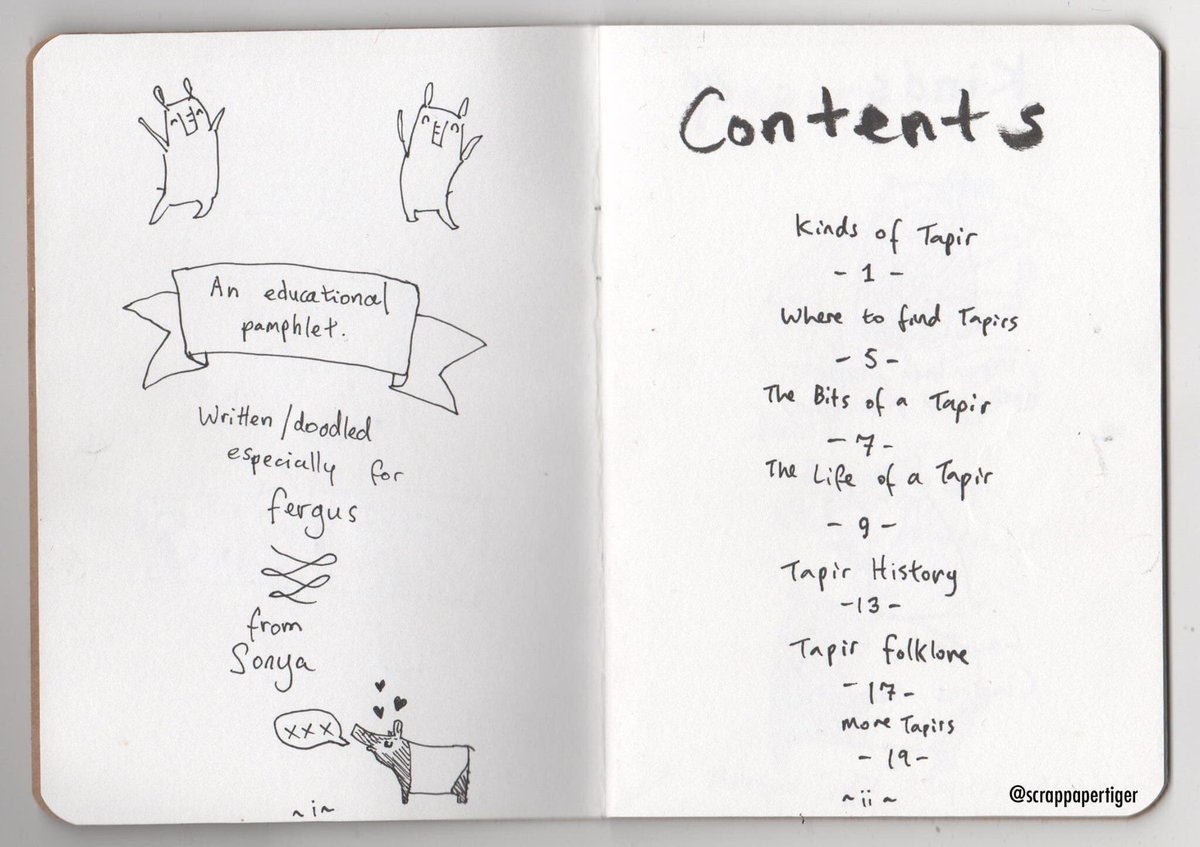 An educational
pamphlet.
Written/doodled
especially for
fergus
from
Sonya
xxx
~i~
Contents
Kinds of Tapir
- 1 -
Where to find Tapirs
- 5 -
The Bits of a Tapir
- 7 -
The Life of a Tapir
- 9 -
Tapir History
-13-
Tapir folklore
-17-
More Tapirs
- 19-
~ii~
@scrappapertiger